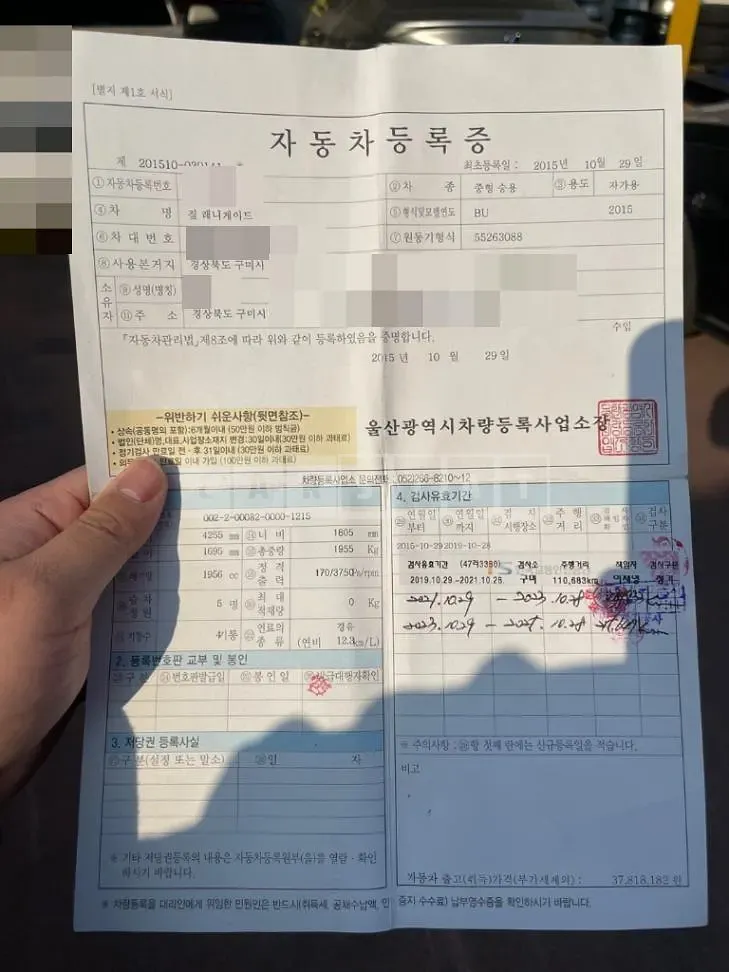 [별지 제1호 서식]
자동차등록증
제 201510-030141 호
최초등록일 : 2015년 10월 29일
①자동차등록번호 ②차 종 중형 승용 ③용도 자가용
④차 명 짚 래니게이드 ⑤형식및모델연도 BU 2015
⑥차대번호 ⑦원동기형식 55263088
⑧사용본거지 경상북도 구미시
소유자 ⑨성명(명칭)
⑪주 소 경상북도 구미시
「자동차관리법」제8조에 따라 위와 같이 등록하였음을 증명합니다.
수입
2015 년 10 월 29 일
-위반하기 쉬운사항(뒷면참조)-
• 상속(공동명의 포함):6개월이내 (50만원 이하 범칙금)
• 법인(단체)명,대표,사업장소재지 변경:30일이내(30만원 이하 과태료)
• 정기검사 만료일 전·후 31일이내 (30만원 이하 과태료)
만료일 이내 가입 (100만원 이하 과태료)
울산광역시차량등록사업소장
차량등록사업소 문의전화:(052)266-8210~12
002-2-00082-0000-1215
4255 mm 너 비 1805 mm
1695 mm 총중량 1955 Kg
1956 cc 정격출력 170/3750Ps/rpm
승차정원 5 명 최대적재량 0 Kg
기통수 4기통 연료의종류 경유 (연비 12.3km/L)
2. 등록번호판 교부 및 봉인
구 분 번호판발급일 봉인일 발급대행자확인
3. 저당권 등록사실
구분(설정 또는 말소) 일 자
※ 기타 저당권등록의 내용은 자동차등록원부(을)을 열람·확인
하시기 바랍니다.
4. 검사유효기간
연월일부터 연월일까지 검 사 시행장소 주행거리 검사책임자확인 검사구분
2015-10-29 2019-10-28
검사유효기간 (47러3390) 검사소 주행거리 책임자 검사구분
2019.10.29-2021.10.28. 구미 110,683km
2021.10.29 - 2023.10.28
2023.10.29 - 2025.10.28
※ 주의사항 : 항 첫째 란에는 신규등록일을 적습니다.
비고
자동차 출고(취득)가격(부가세제외) : 37,818,182 원
※ 차량등록을 대리인에게 위임한 민원인은 반드시(취득세, 공채수납액, 인 증지 수수료) 납부영수증을 확인하시기 바랍니다.